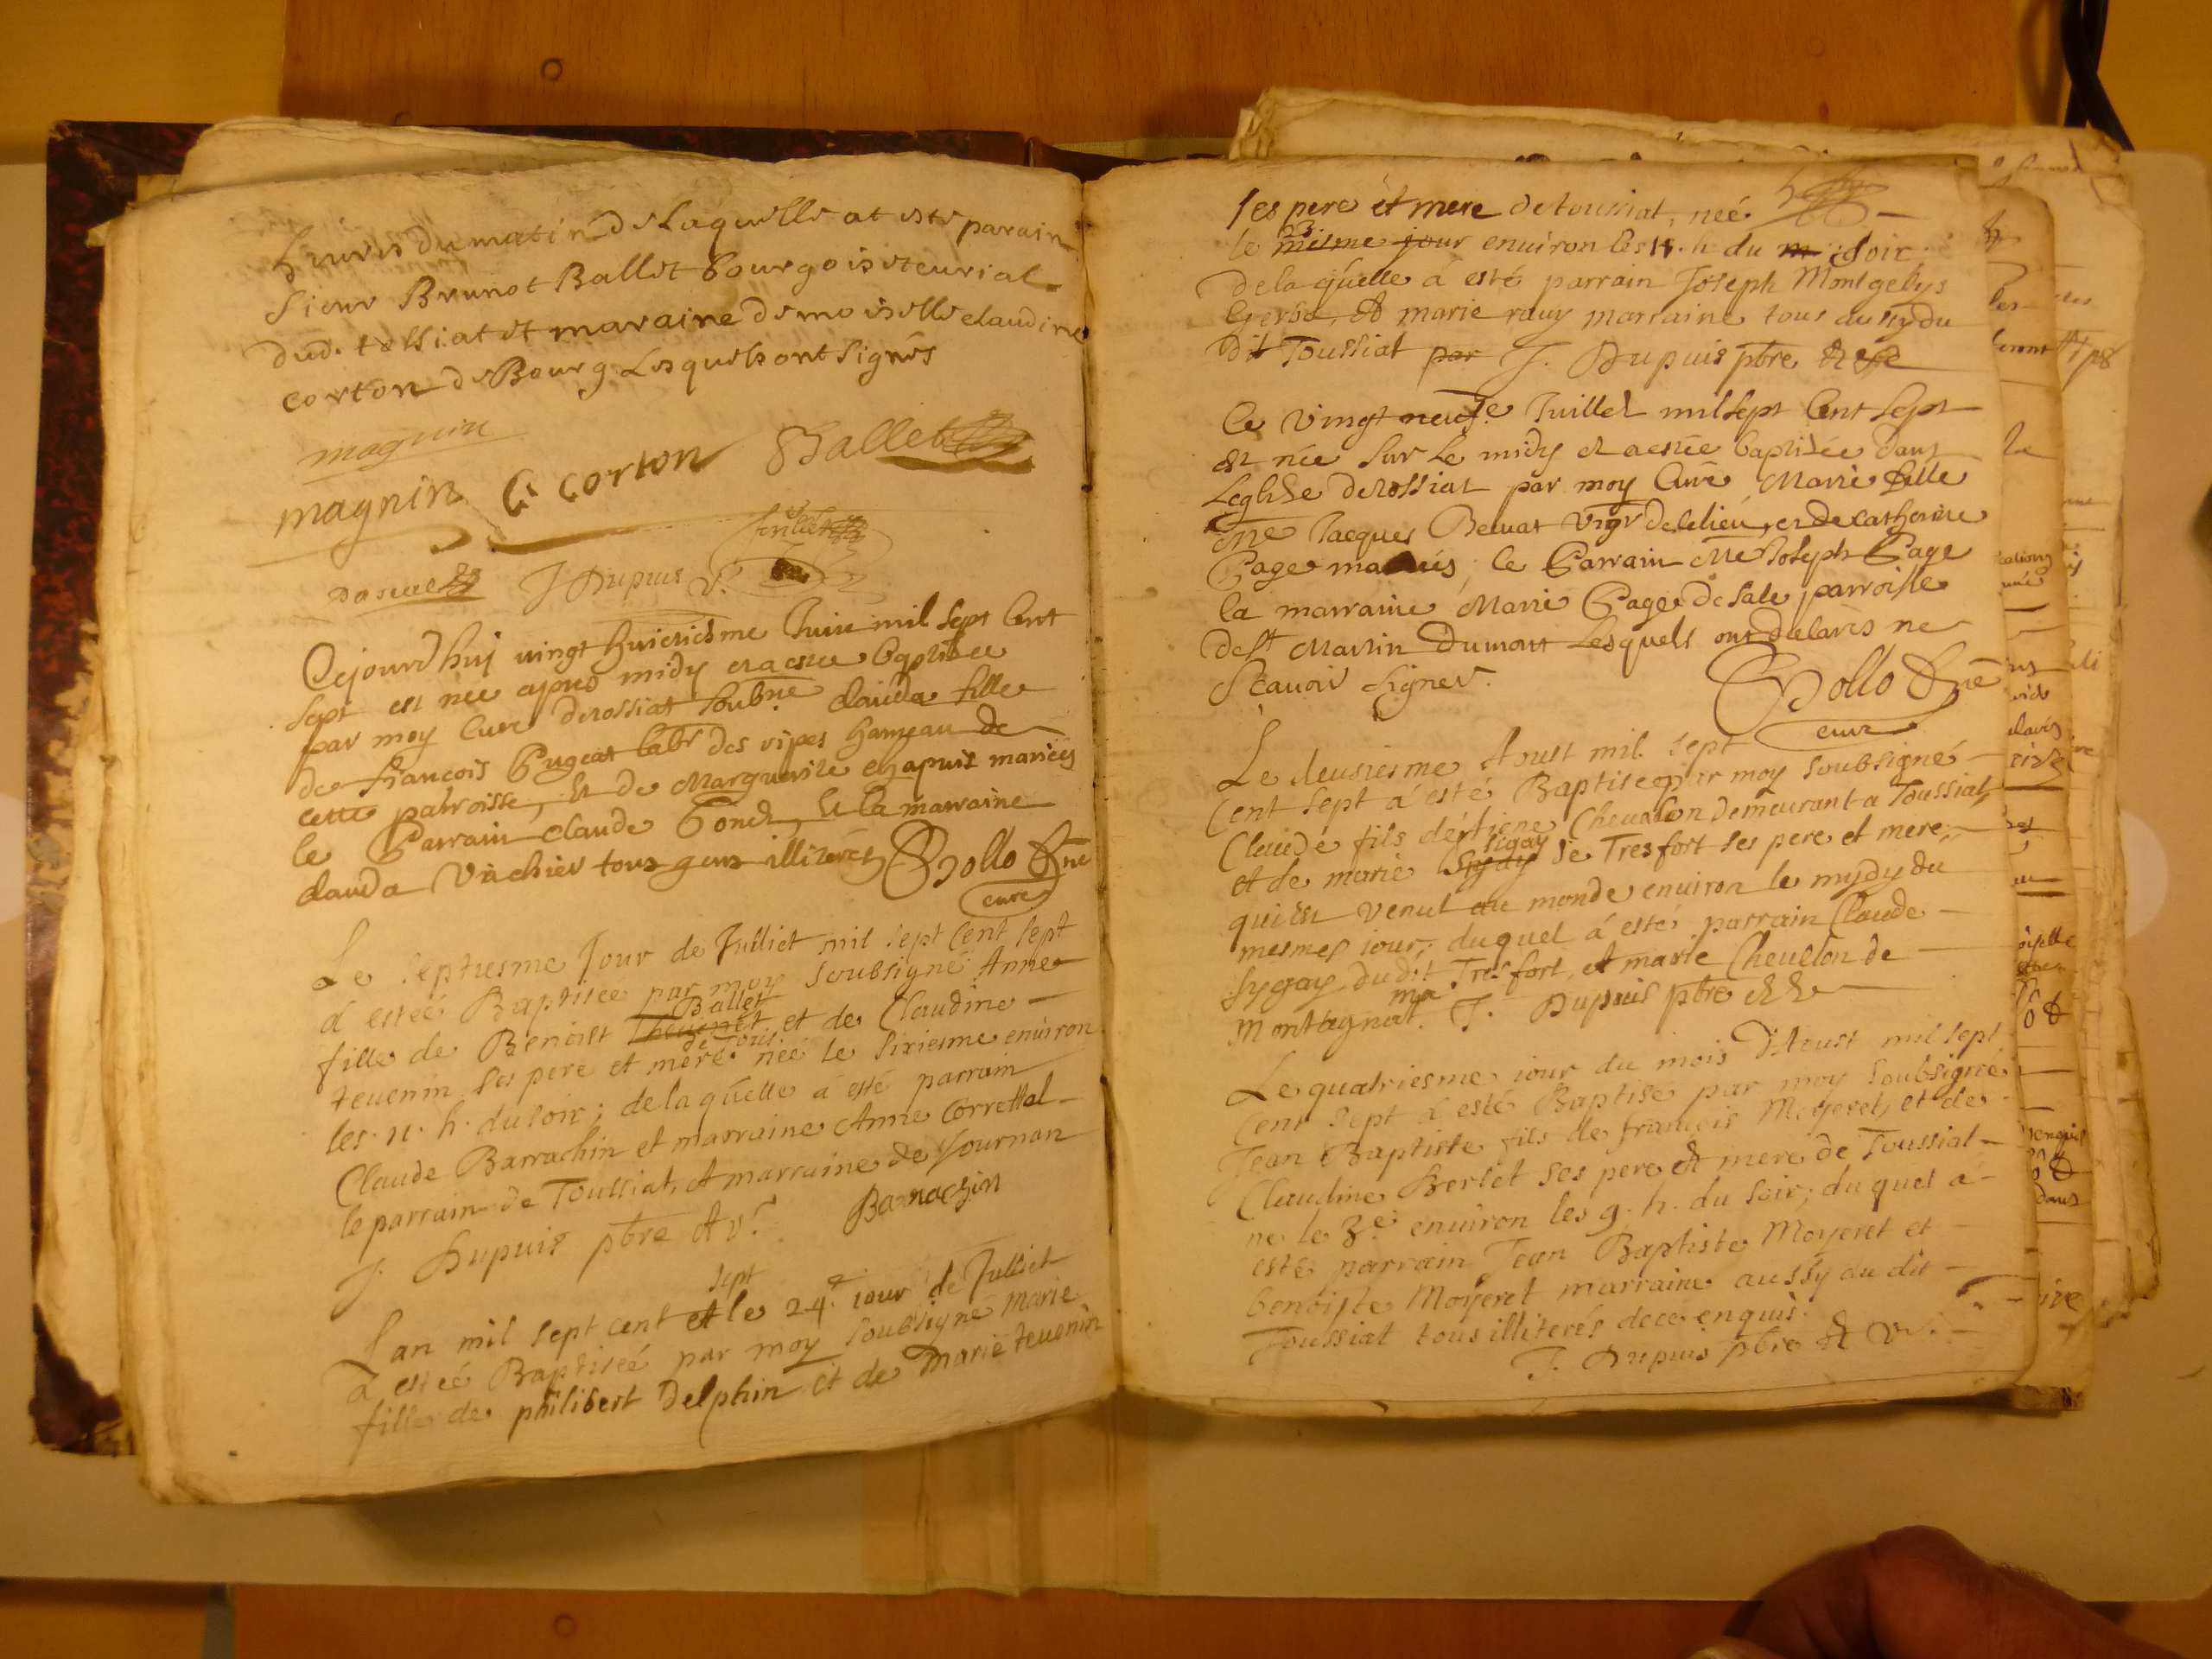 heures du matin de Laquelle at este parain
Sieur Brunot Ballet bourgois et curial
dud. tossiat et maraine demoiselle claudine
corton de Bourg Lesquels ont signés
magnin
magnin C. corton Ballet
J Dupuis V.
Cejourdhuy vingt huictiesme Juin mil sept Cent
sept est née apres midy et a estee baptisee
par moy Curé de tossiat soubné. clauda fille
de francois Pugeat labr des vipes hameau de
cette parroisse, et de Marguerite chapuis mariées
le Parrain claude Pond, et la marraine
clauda Vachier tous gens illiterés Bollo
curé
Le septiesme Jour de Julliet mil sept cent sept
á esteé Baptiseé par moy soubsigné Anne
Ballet
fille de Benoist Theuenet et de Claudine
teuenin ses pere et mere neé le sixiesme enuiron
les. 11. h. du soir; de la quelle á esté parrain
Claude Barrachin et marraine Anne Correttal
le parrain de Toussiat, et marraine de Journan
J. Dupuis pbre et v. Barrachin
sept
Lan mil sept cent et le 24.e iour de Julliet
á esteé Baptiseé par moy soubsigné Marie
fille de philibert Delphin et de Marie teuenin
ses pere et mere de toussiat, neé
23
le mesme jour enuiron les h. du m soir
de la quelle á esté parrain Joseph Montgelys
Gerbe, et marie rauy marraine tous aussy du
dit Toussiat par J. Dupuis pbre et
le vingt neufe. Juillet mil sept Cent sept
est née sur le midy et a estée baptisée dans
Leglise de tossiat par moy Curé Marie fille
Jacques Beluat Vigr de ce lieu, et de catherine
Page mariés; le Parrain Me Joseph Page
la marraine Marie Page de Sale parroisse
de st Martin Dumont Lesquels ont déclarés ne
Scauoir signer. Bollo
curé
Le deusiesme Aoust mil sept
Cent sept á esté Baptisé par moy soubsigné
Claude fils détiene Cheualon demeurant a Toussiat
sigay
et de marie de Tresfort ses pere et mere
qui est venut au monde enuiron le mydy du
mesmes iour; duquel á esté parrain Claude
sygay du dit Tresfort, et marie Cheuelon de
ma
Montagnat. J. Dupuis pbre et
Le quatriesme iour du mois d'Aoust mil sept
Cent sept á esté Baptisé par moy soubsigné
Jean Baptiste fils de francois Moyeret, et de
Claudine Berlet ses pere et mere de Toussiat
né le 3e. enuiron les 9. h. du soir; du quel á
esté parrain Jean Baptiste Moyeret et
benoiste Moyeret marraine aussy du dit
Toussiat tous illiterés de ce enquis.
J. Dupuis pbre et v.